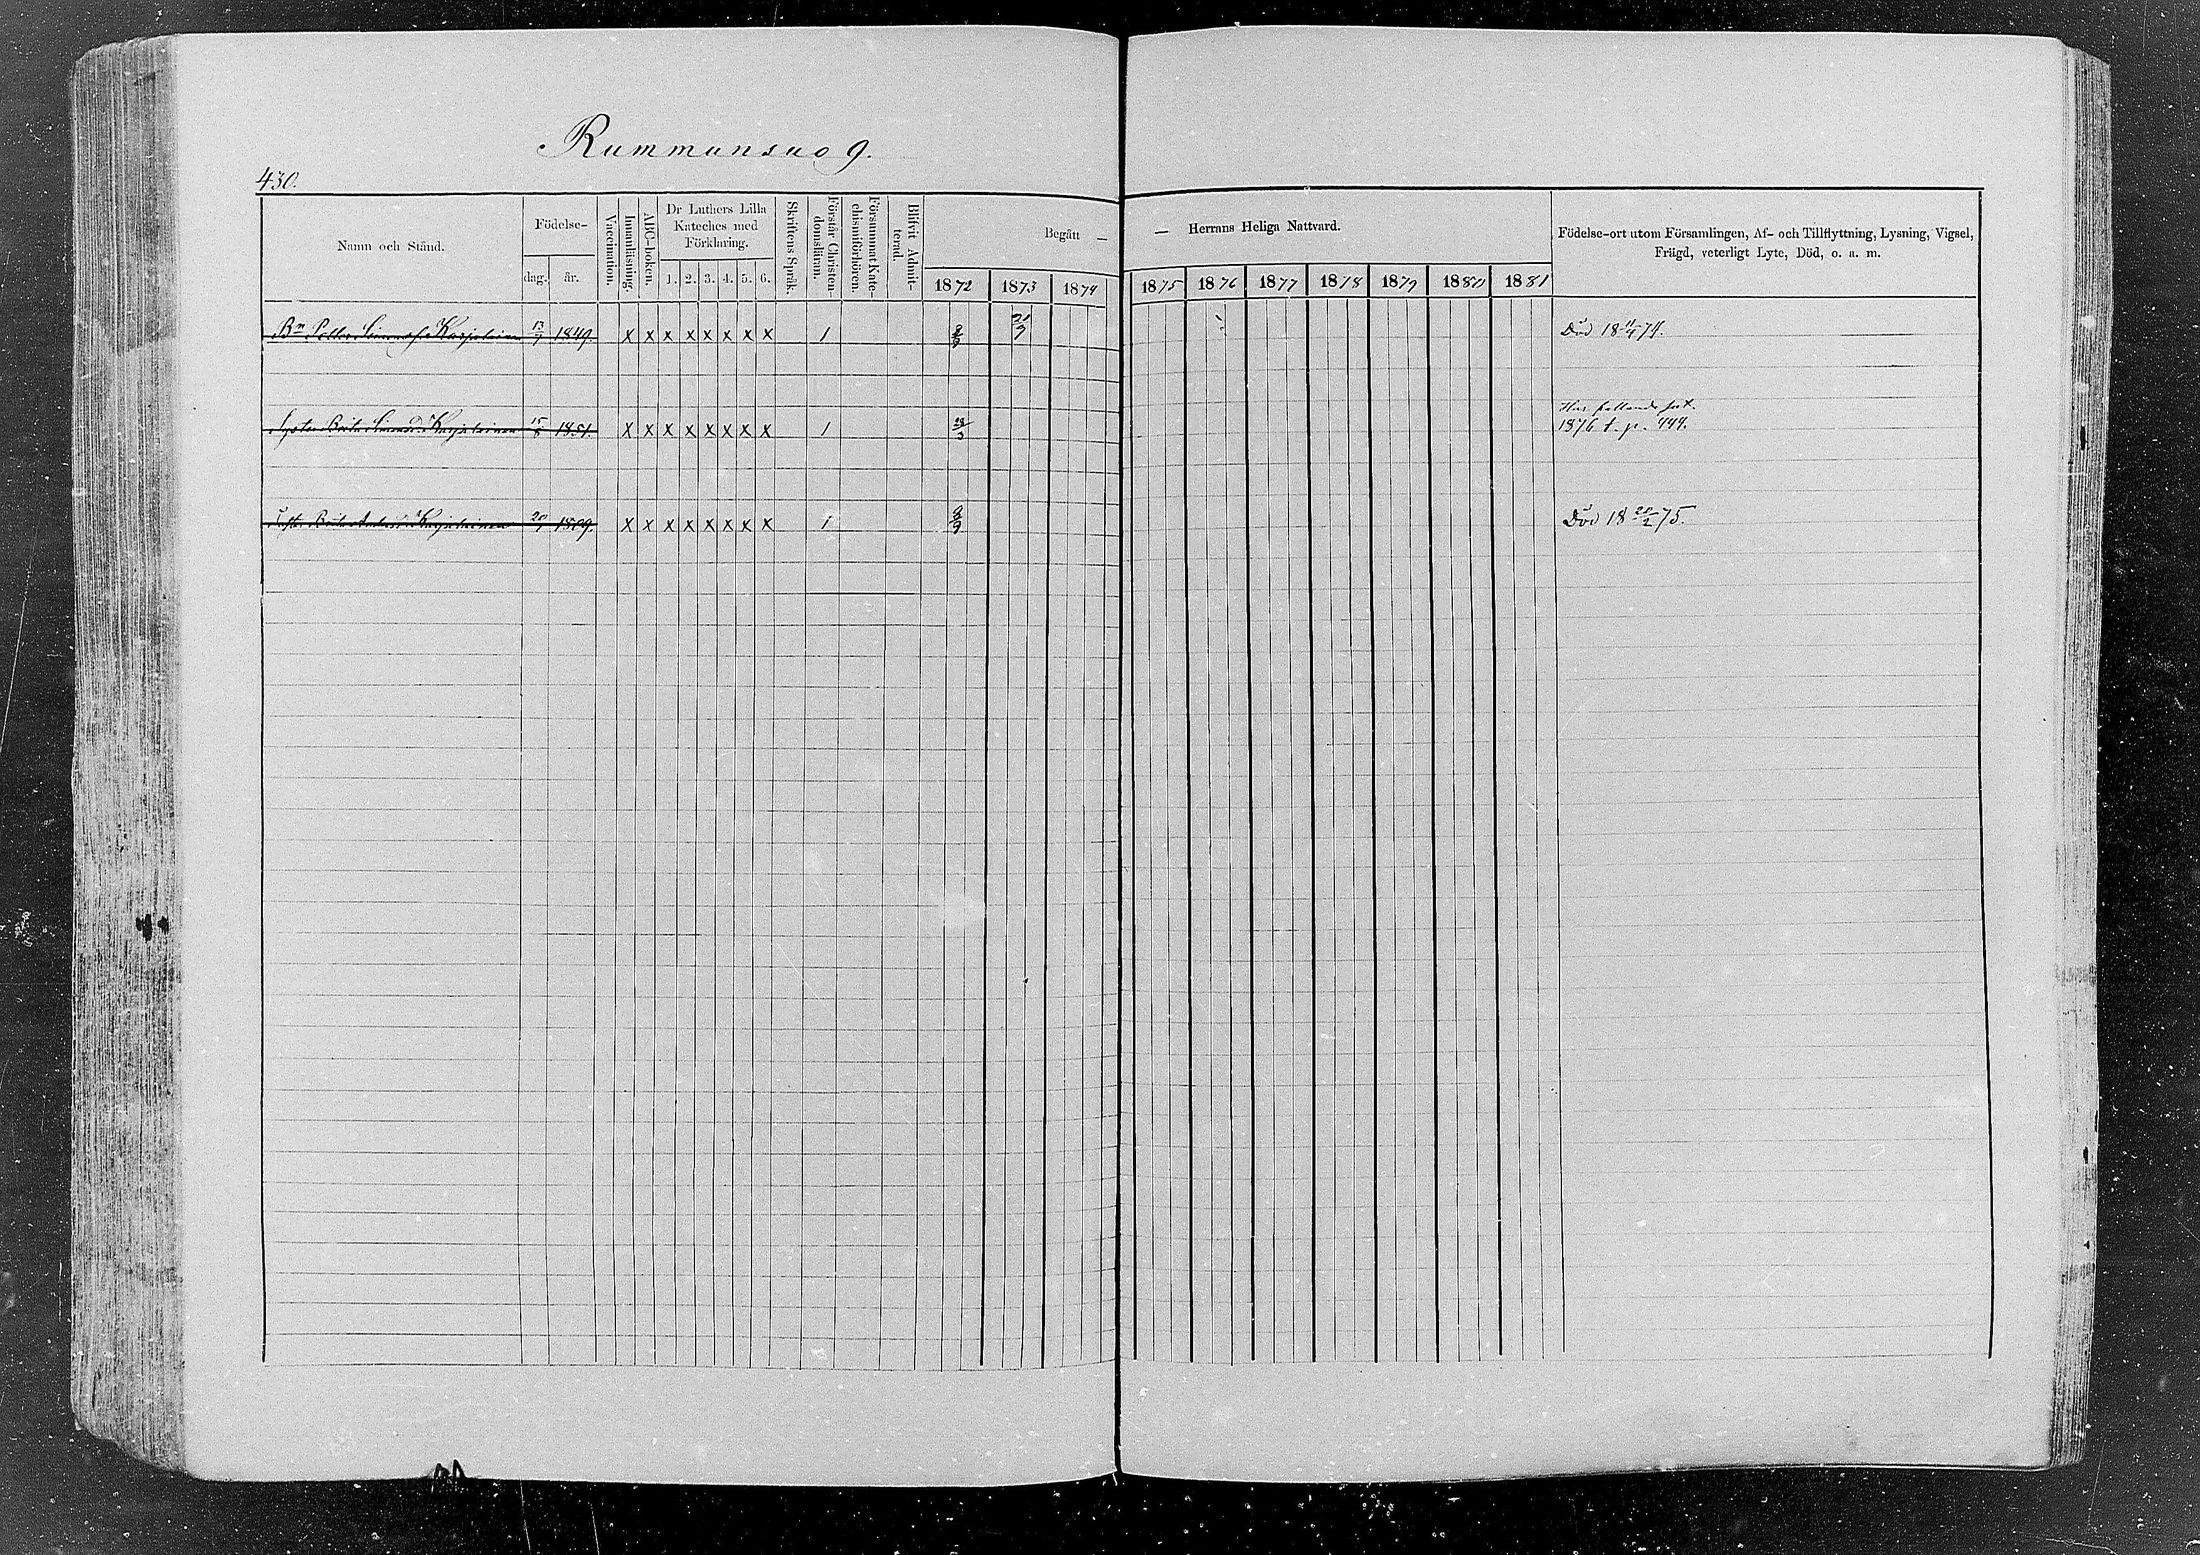 Rummunsuo 9.
430.
Namn och Stånd.
Födelse-
dag. år.
Vaccination.
Innanläsning.
ABC-boken.
Dr Luthers Lilla
Kateches med
Förklaring.
1. 2. 3. 4. 5. 6.
Skriftens Språk.
Förstår Christen-
domsläran.
Försummat Kate-
chismiförhören.
Blifvit Admit-
terad.
Begått — — Herrans Heliga Nattvard.
1872 1873 1874 1875 1876 1877 1878 1879 1880 1881
Födelse-ort utom Församlingen, Af- och Tillflyttning, Lysning, Vigsel,
Frägd, veterligt Lyte, Död, o. a. m.
Bn Petter Simonss. Karjalainen 13/7 1849. x x x x x x x x 1 8/9 21/9 Död 18 11/4 74.
Syster Brita Simonsd. Karjalainen 15/8 1851. x x x x x x x x 1 28/3
1876 t. p. 444.
Brita Andersd. Karjalainen 1809. x x x x x x x x 1 8/9 Död 18 20/2 75.